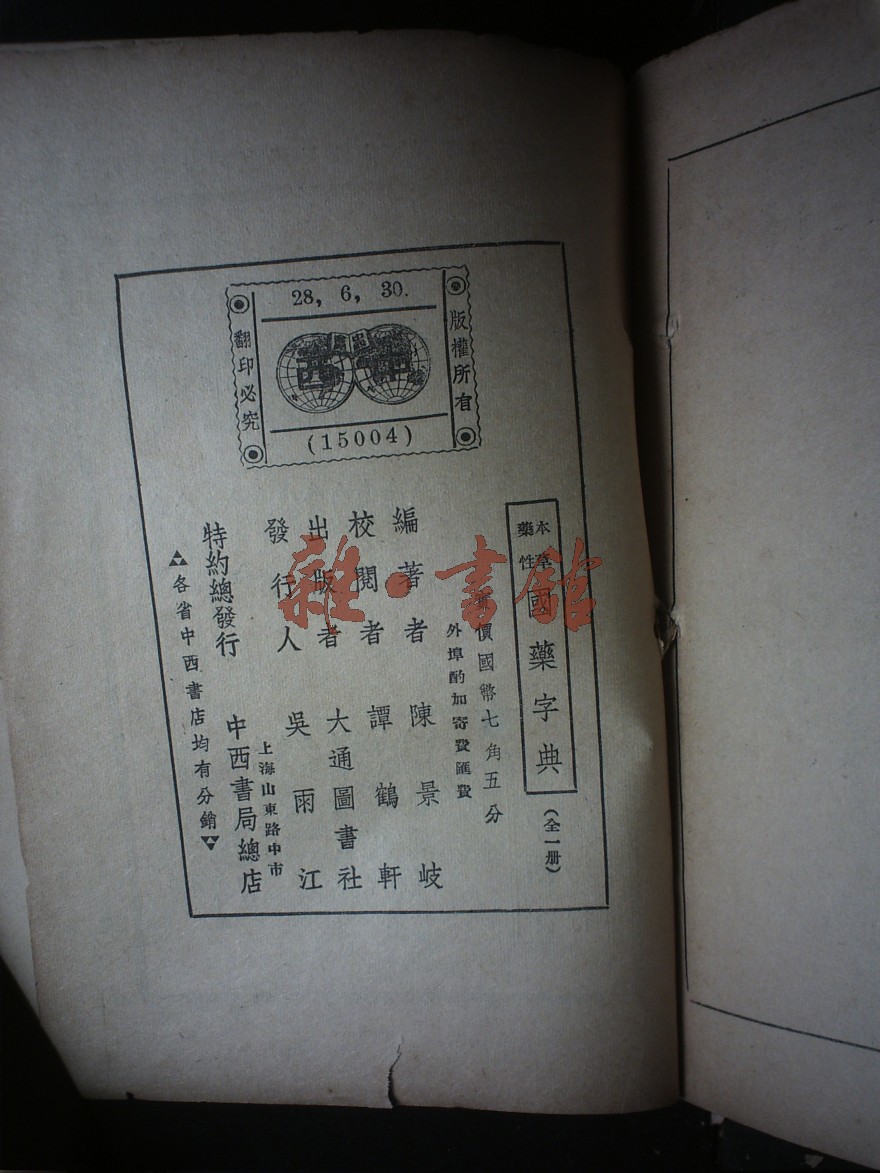 28, 6, 30.
版權所有
翻印必究
(15004)
本草
藥性
國藥字典
(全一册)
價國幣七角五分
外埠酌加寄費匯費
編著者 陳景岐
校閱者 譚鶴軒
出版者 大通圖書社
發行人 吳雨江
上海山東路中市
特約總發行 中西書局總店
各省中西書店均有分銷
雜·書館